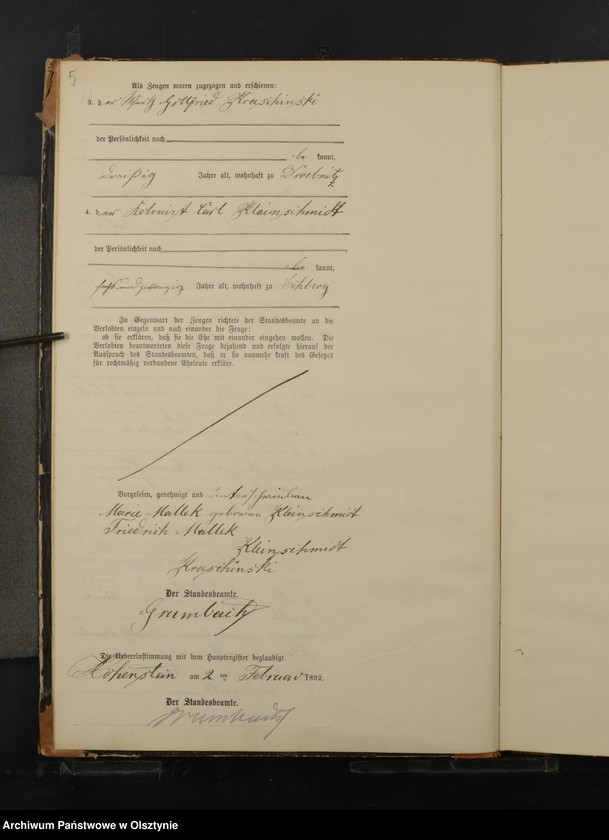 5
Als Zeugen waren zugezogen und erschienen:
3. der Wirth Gottfried Kraschinski
der Persönlichkeit nach
be kannt,
dreißig Jahre alt, wohnhaft zu Droebnitz
4. der Kolonist Carl Kleinschmidt
der Persönlichkeit nach
be kannt,
sechsundzwanzig Jahre alt, wohnhaft zu
In Gegenwart der Zeugen richtete der Standesbeamte an die
Verlobten einzeln und nach einander die Frage:
ob sie erklären, daß sie die Ehe mit einander eingehen wollen. Die
Verlobten beantworteten diese Frage bejahend und erfolgte hierauf der
Ausspruch des Standesbeamten, daß er sie nunmehr kraft des Gesetzes
für rechtmäßig verbundene Eheleute erkläre.
Vorgelesen, genehmigt und unterschrieben
Marie Mallek geborene Kleinschmidt
Friedrich Mallek
Kleinschmidt
Kraschinski
Der Standesbeamte.
Die Uebereinstimmung mit dem Hauptregister beglaubigt.
Hohenstein am 2 ten Februar 1892.
Der Standesbeamte.
Archiwum Państwowe w Olsztynie